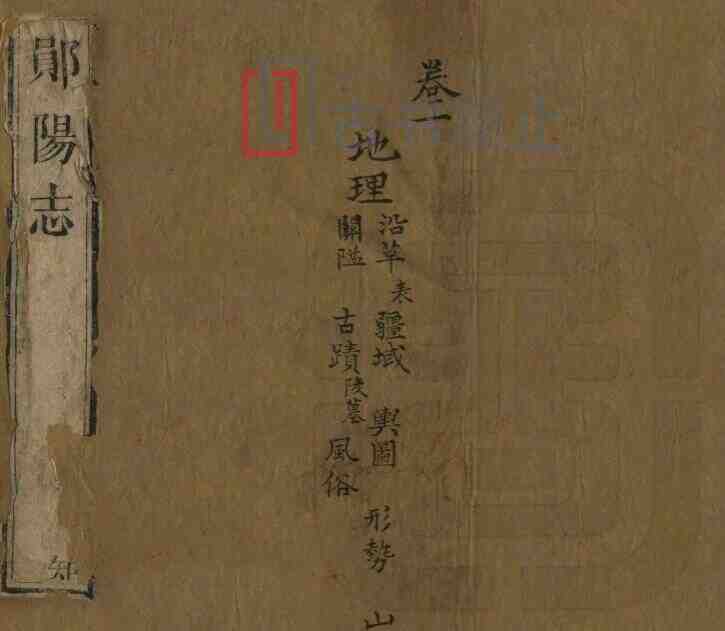 卷二
地理
沿革表 疆域 輿圖 形勢 山
關隘 古蹟陵墓 風俗
鄖陽志